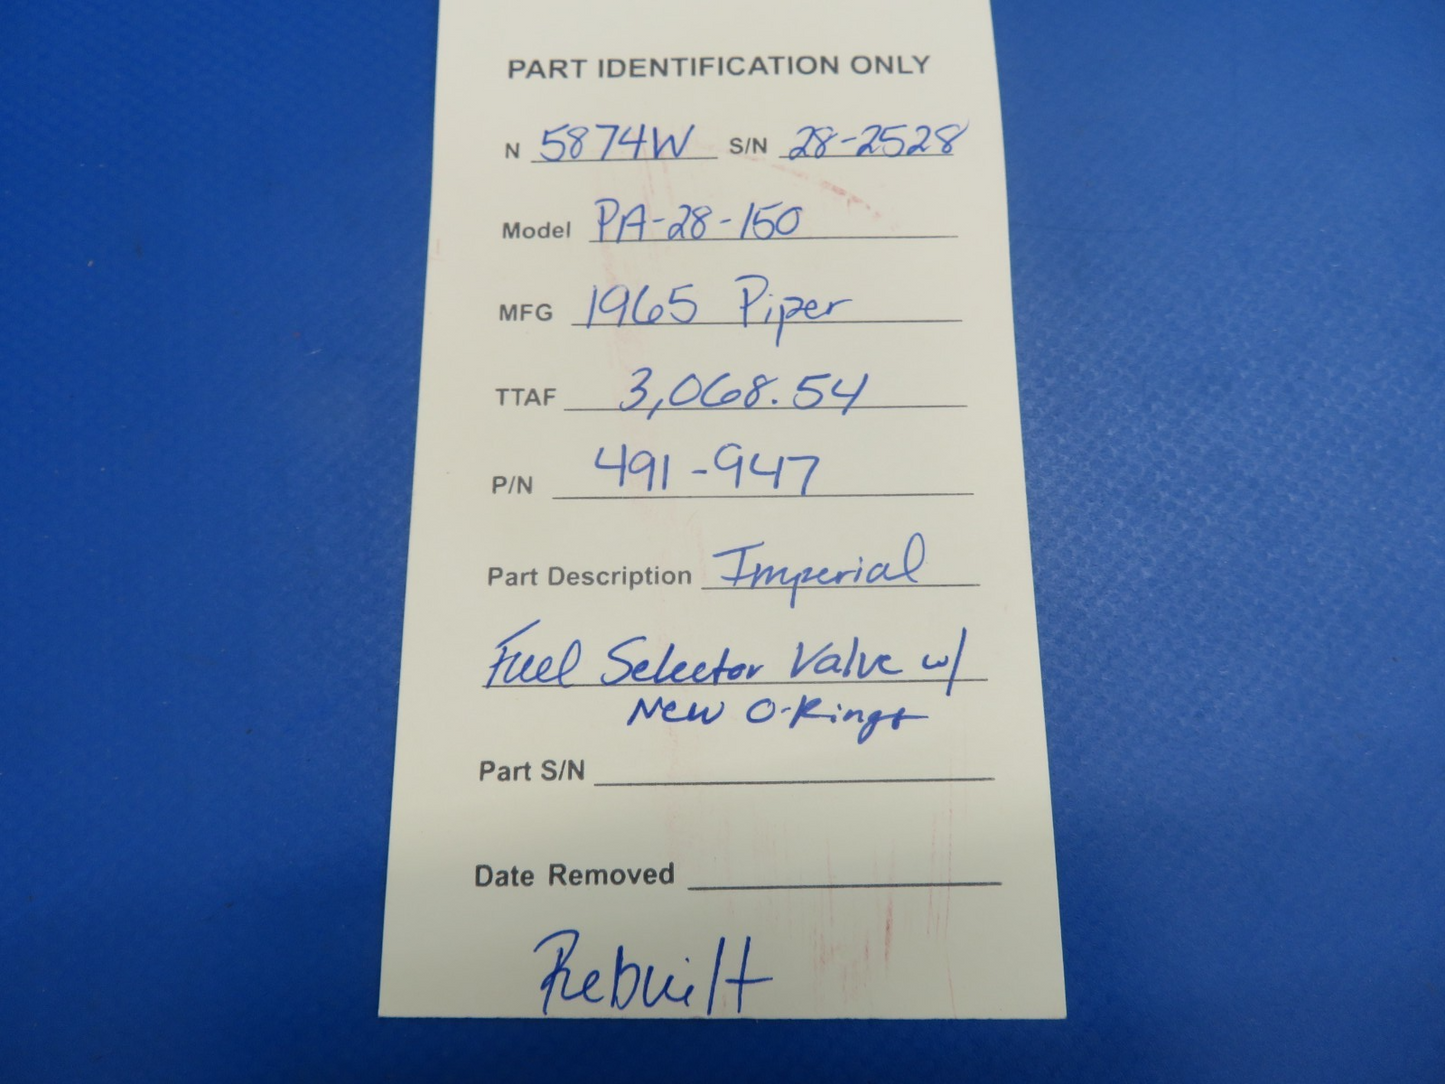 PART IDENTIFICATION ONLY
N 5874W S/N 28-2528
Model PA-28-150
MFG 1965 Piper
TTAF 3,068.54
P/N 491-947
Part Description Imperial
Fuel Selector Valve w/
New O-Rings
Part S/N
Date Removed
Rebuilt